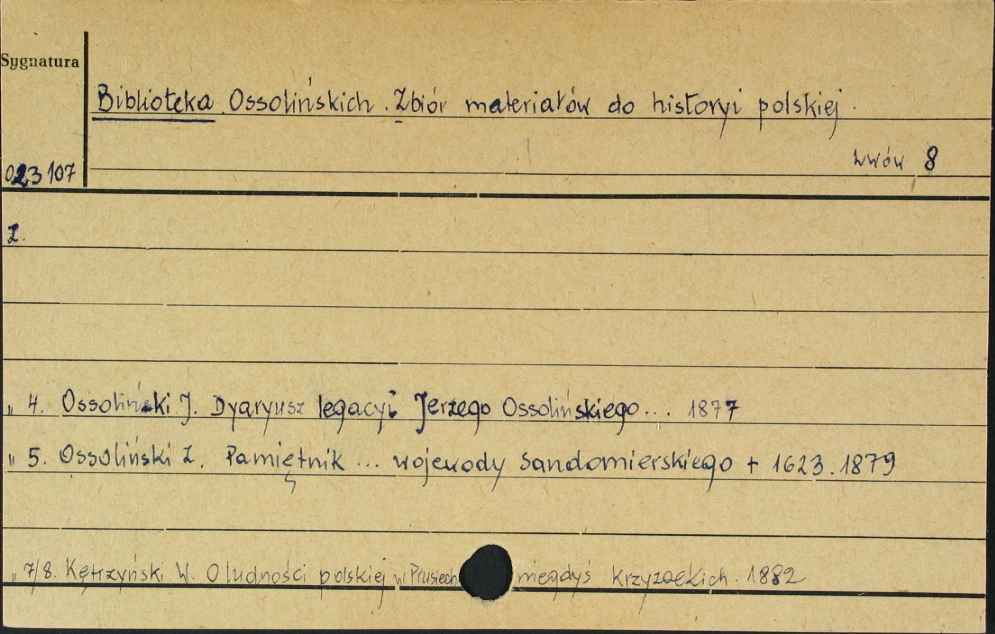 Sygnatura
Biblioteka Ossolińskich. Zbiór materiałów do historyi polskiej.
Lwów 8
023107
Z.
„ 4. Ossoliński J. Dyaryusz legacyi Jerzego Ossolińskiego... 1877
„ 5. Ossoliński Z. Pamiętnik ... wojewody sandomierskiego + 1623. 1879
„ 7/8. Kętrzyński W. O ludności polskiej w Prusiech niegdyś krzyżackich. 1882